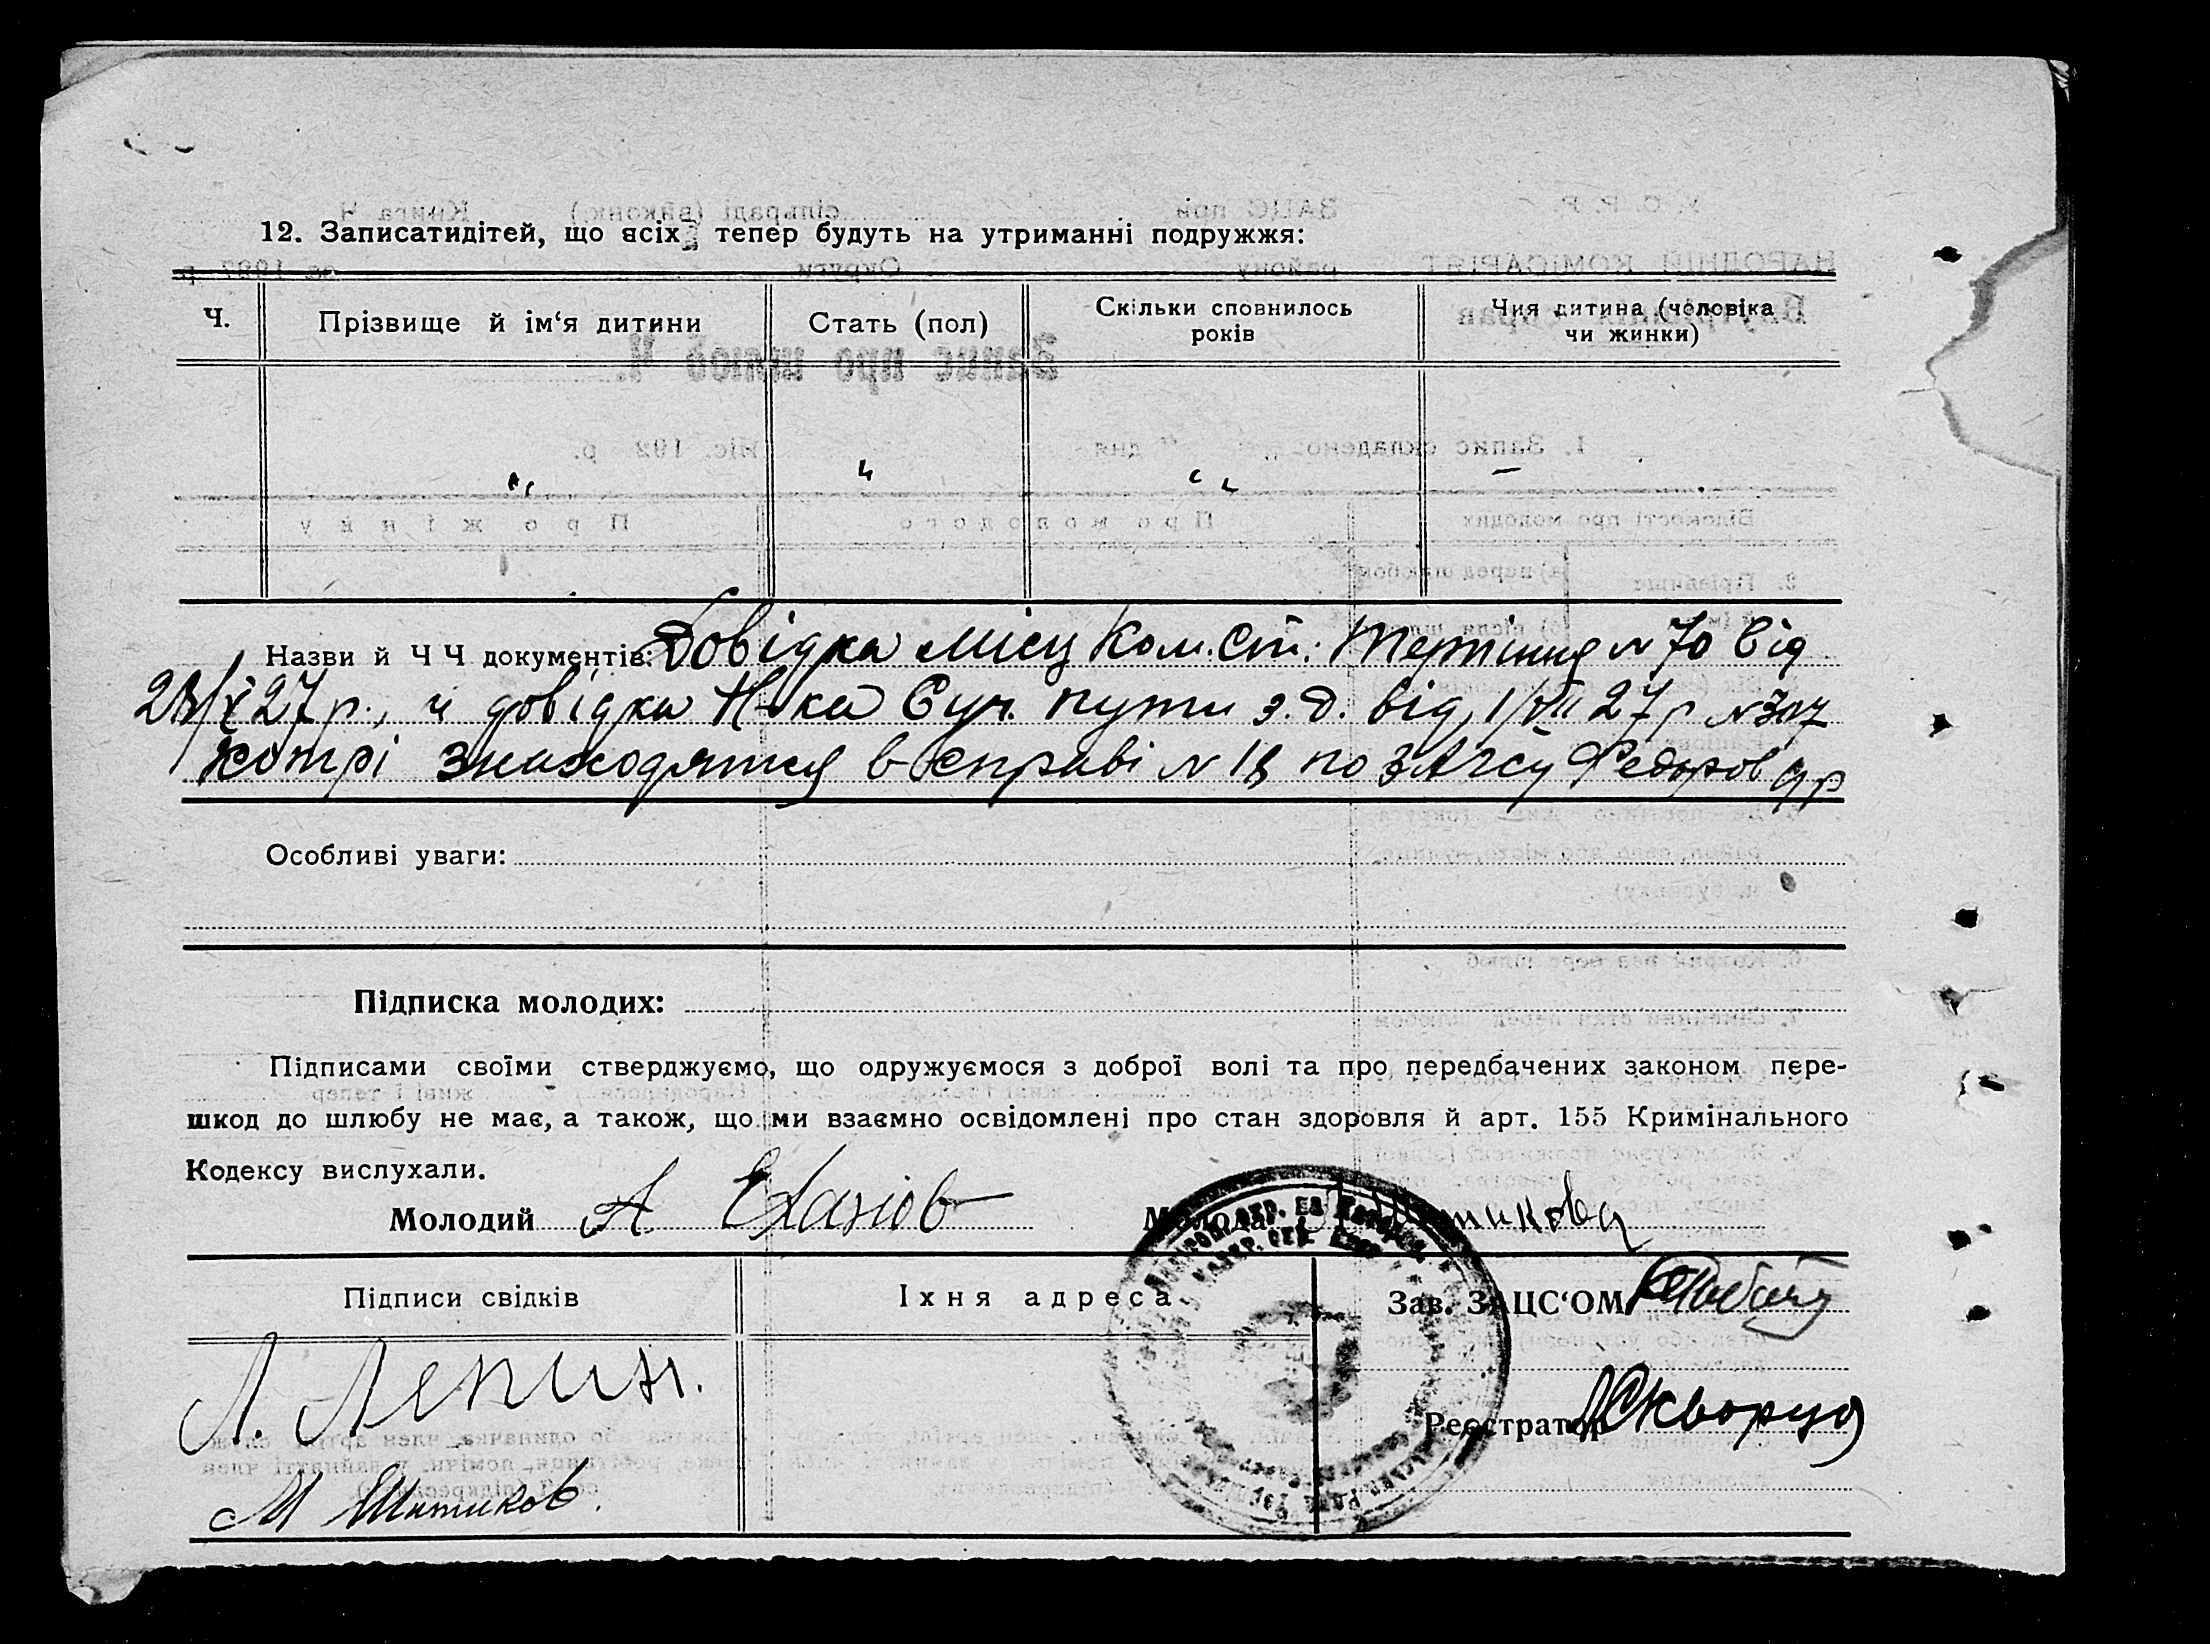 12. Записатидітей, що всіх тепер будуть на утриманні подружжя:
Ч.
Прізвище й ім‘я дитини
Стать (пол)
Скільки сповнилось
років
Чия дитина (чоловіка
чи жинки)
„ „ „ —
Назви й Ч Ч документів: Довідка місц Ком. Ст. № 70 від
27 р., и довідка Н-ка 6 уч. пути з. д. від 1/VII 27 р №
котрі знаходятця в справі № 18 по ЗАГСу Федоров
Особливі уваги:
Підписка молодих:
Підписами своїми стверджуємо, що одружуємося з доброї волі та про передбачених законом пере-
шкод до шлюбу не має, а також, що ми взаємно освідомлені про стан здоровля й арт. 155 Кримінального
Кодексу вислухали.
Молодий А Молода
Підписи свідків
Їхня адреса
Зав. ЗАЦС‘ОМ
Л. Лепин.
Реєстратор Скворцо
М Шитиков.